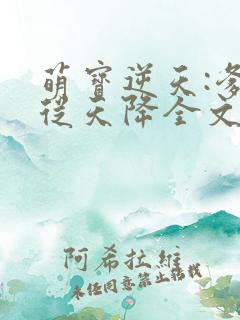 萌寶逆天:爹
從天降全文
阿希拉維
未経同意禁止転載